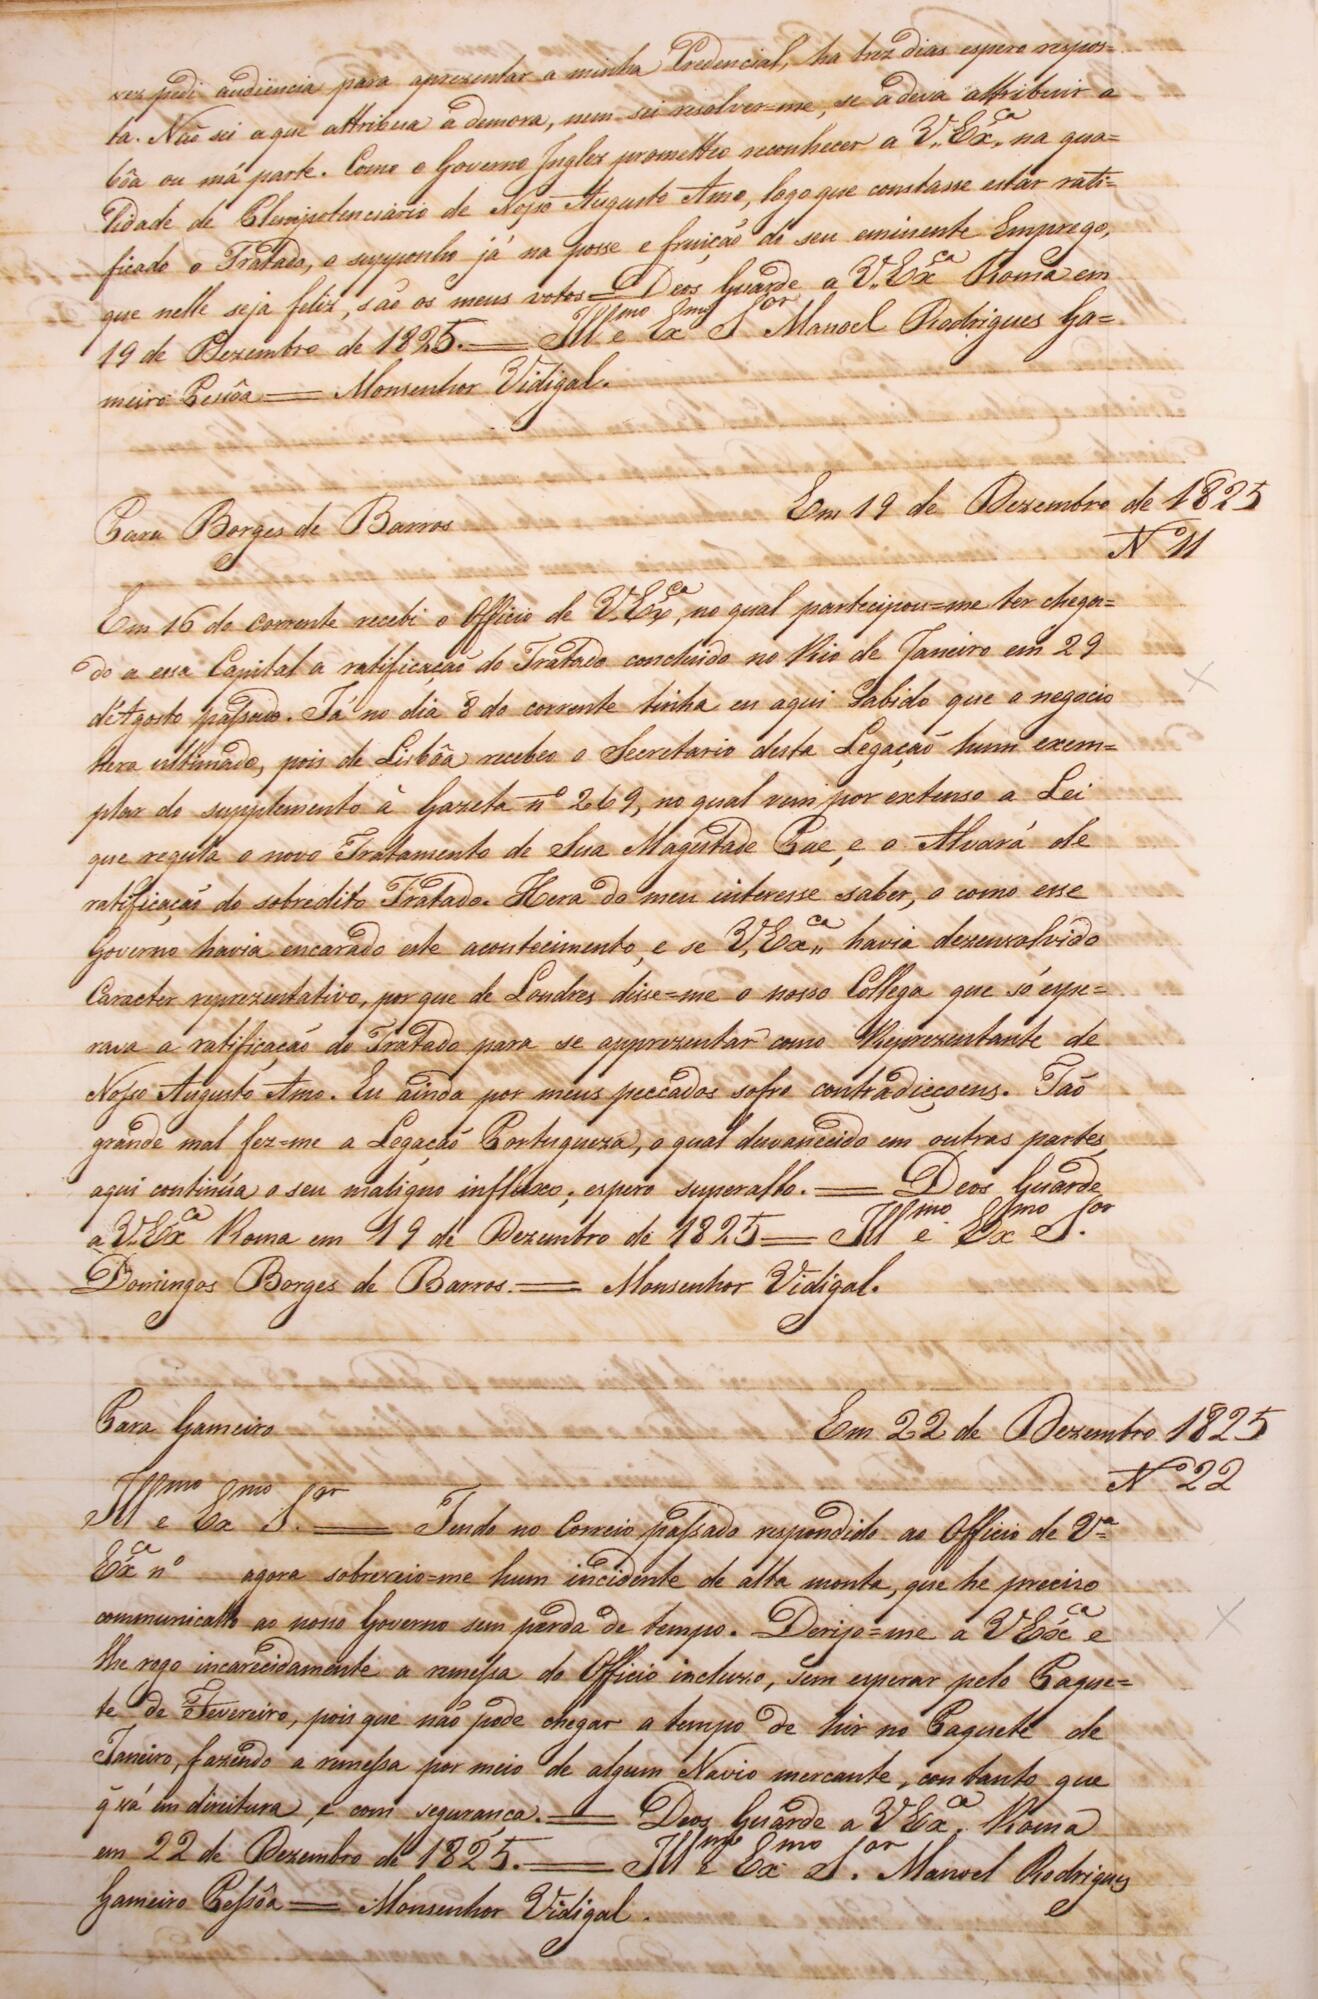 vez pedi audiencia para aprezentar a minha Credencial, ha trez dias espero respos=
ta. Não sei a que attribua a demora, nem sei resolver=me, se a deva attribuir a
bôa ou má parte. Como o Governo Inglez prometteo reconhecer a V. Ex.ca na qua=
lidade de Plenipotenciario de Nosso Augusto Amo, logo que constasse estar rati=
ficado o Tratado, o supponho já na posse e fruição do seu eminente Emprego,
que nelle seja feliz, são os meus votos = Deos Guarde a V. Ex.ca Roma em
19 de Dezembro de 1825. = Ill.mo e Ex.mo S.or Manoel Rodrigues Ga=
meiro Pessôa = Monsenhor Vidigal.
Para Borges de Barros
Em 19 de Dezembro de 1825
Nº 11
Em 16 do corrente recebi o Officio de V. Ex.ca, no qual partecipou=me ter chega=
do a essa Capital a ratificação do Tratado concluido no Rio de Janeiro em 29
d'Agosto passado. Já no dia 8 do corrente tinha eu aqui sabido que o negocio
hera ultimado, pois de Lisbôa recebeo o Secretario desta Legação hum exem=
plar do supplemento à Gazeta nº 269, no qual vem por extenso a Lei
que regula o novo Tratamento de Sua Magestade Pae, e o Alvará de
ratificação do sobredito Tratado. Hera do meu interesse saber, o como esse
Governo havia encarado este acontecimento, e se V. Ex.ca havia dezenvolvido
Caracter reprezentativo, por que de Londres disse=me o nosso Collega que só espe=
rava a ratificação do Tratado para se apprezentar como Reprezentante de
Nosso Augusto Amo. Eu ainda por meus peccados sofro contradicçoens. Tão
grande mal fez=me a Legação Portugueza, o qual desvanecido em outras partes,
aqui continúa o seu maligno influxo; espero superallo. = Deos Guarde
a V. Ex.ca Roma em 19 de Dezembro de 1825 = Ill.mo e Ex.mo S.or
Domingos Borges de Barros. = Monsenhor Vidigal.
Para Gameiro
Em 22 de Dezembro 1825
Nº 22
Ill.mo e Ex.mo S.or = Tendo no Correio passado respondido ao Officio de V.a
Ex.ca nº agora sobreveio=me hum incidente de alta monta, que he precizo
communicallo ao nosso Governo sem perda de tempo. Derijo=me a V Ex.ca e
lhe rogo incarecidamente a remessa do Officio incluzo, sem esperar pelo Paque=
te de Fevereiro, pois que não pode chegar a tempo de hir no Paquete de
Janeiro, fazendo a remessa por meio de algum Navio mercante, con tanto que
q vá em direitura, e com segurança. = Deos Guarde a V Ex.ca. Roma
em 22 de Dezembro de 1825. = Ill.mo e Ex.mo S.or Manoel Rodrigues
Gameiro Pessôa = Monsenhor Vidigal.